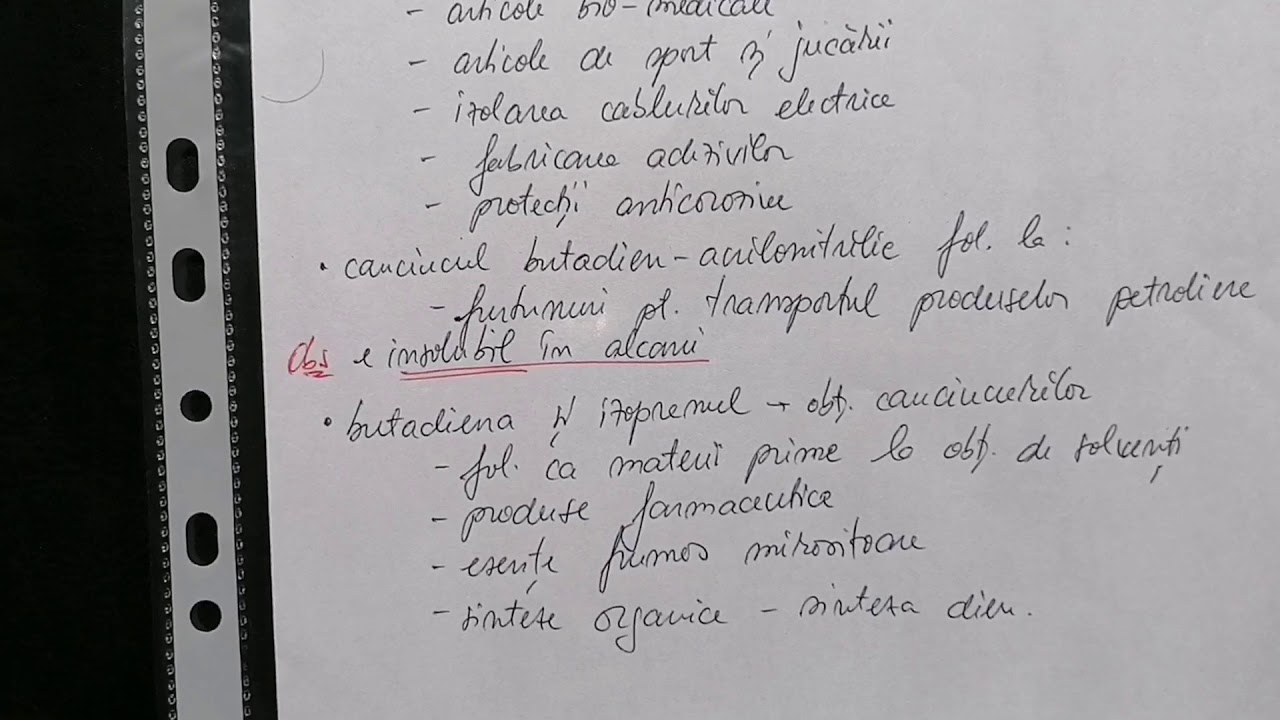 - articole bio-medicale
- articole de sport și jucării
- izolarea cablurilor electrice
- fabricarea adezivilor
- protecții anticorosive
• cauciucul butadien-acrilonitrilic fol. la :
- furtunuri pt. transportul produselor petroliere
Obs e insolubil în alcani
• butadiena și izoprenul → obț. cauciucurilor
- fol. ca materii prime la obț. de solvenți
- produse farmaceutice
- esențe frumos mirositoare
- sinteze organice - sinteza dien.